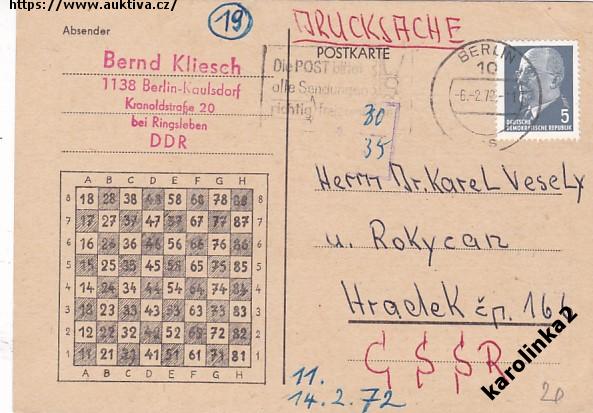 https://www.auktiva.cz/
19
DRUCKSACHE
Absender
POSTKARTE
Bernd Kliesch
1138 Berlin-Kaulsdorf
Kranoldstraße 20
bei Ringsleben
DDR
Die POST bittet
alle Sendungen
richtig
BERLIN
10
-6.-2.72
5
DEUTSCHE
DEMOKRATISCHE REPUBLIK
30
35
Herrn Dr. Karel Vesely
u. Rokycan
Hradek čp. 166
ČSSR
A B C D E F G H
8 18 28 38 48 58 68 78 88 8
7 17 27 37 47 57 67 77 87 7
6 16 26 36 46 56 66 76 86 6
5 15 25 35 45 55 65 75 85 5
4 14 24 34 44 54 64 74 84 4
3 13 23 33 43 53 63 73 83 3
2 12 22 32 42 52 62 72 82 2
1 11 21 31 41 51 61 71 81 1
A B C D E F G H
11.
14.2.72
karolinka2
20